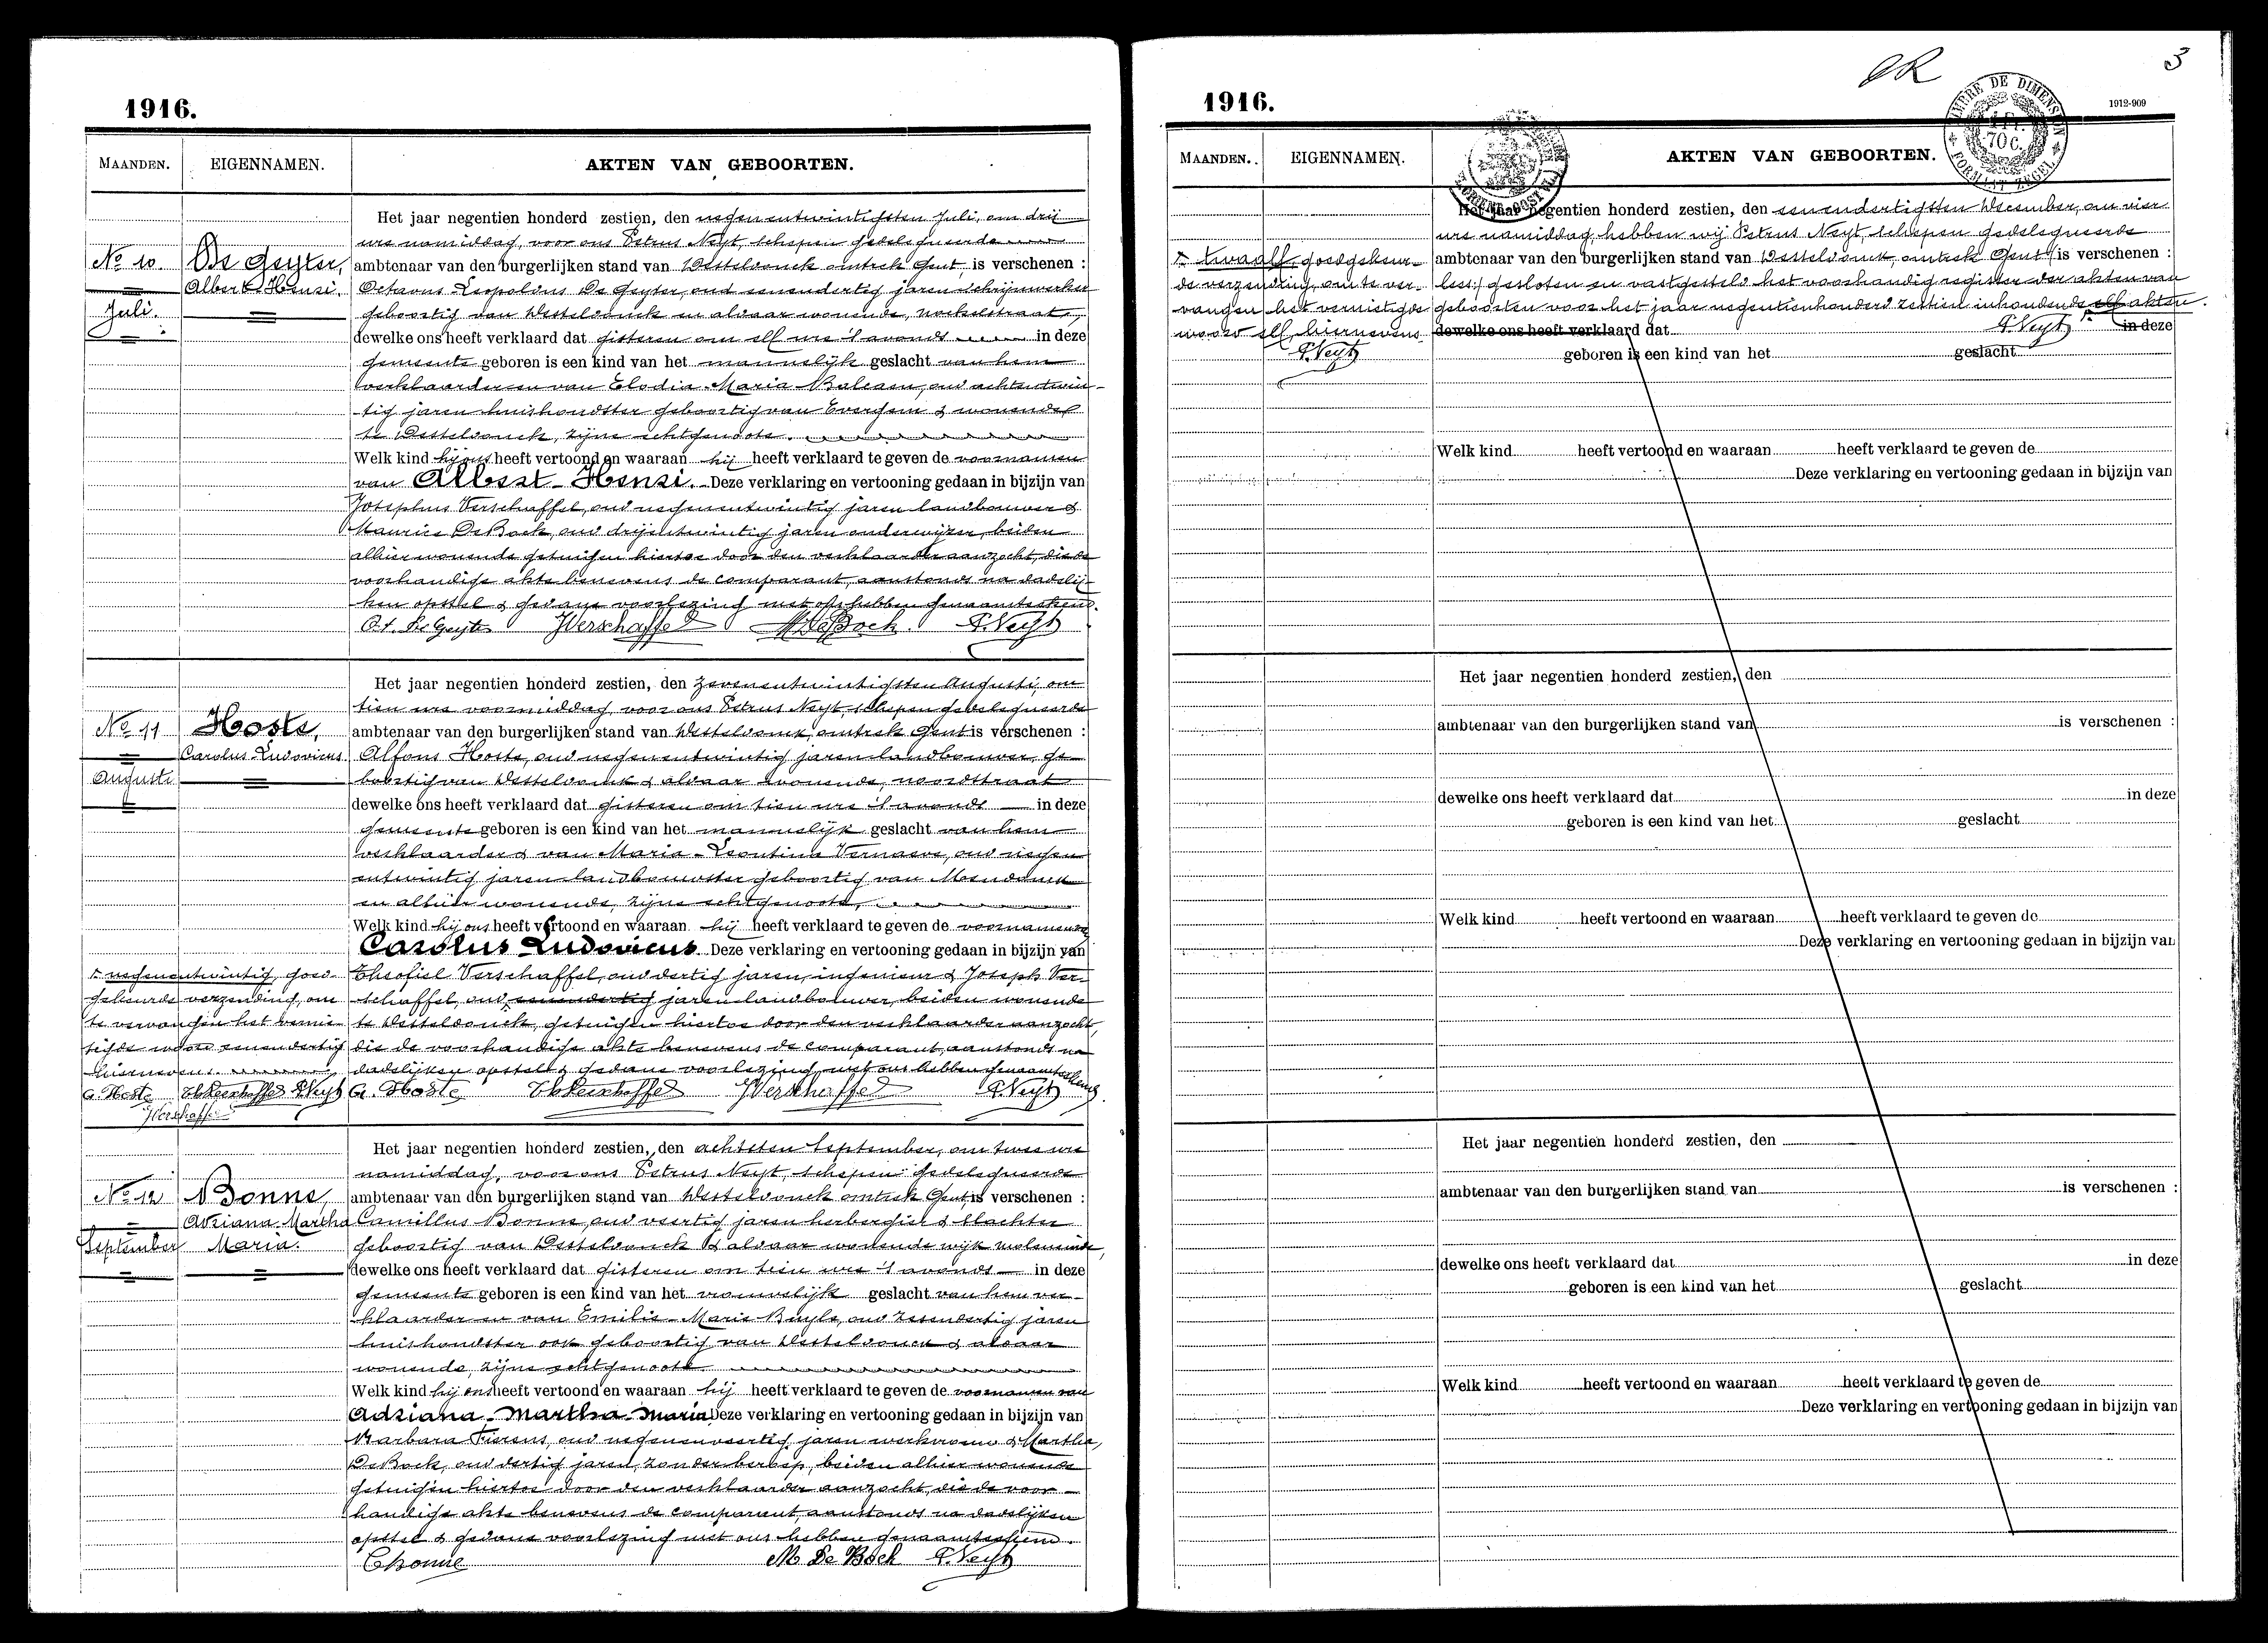 1916.
MAANDEN. EIGENNAMEN. AKTEN VAN GEBOORTEN.
Het jaar negentien honderd zestien, den negenentwintigsten Juli, om drij
ure namiddag, voor ons Petrus Neyt, schepen gedelegueerde
No 10. De Geyter, ambtenaar van den burgerlijken stand van Desteldonck omtrek Gent, is verschenen :
Albert Henri. Octavus Leopoldus De Geyter, oud eenendertig jaren schrijnwerker
Juli. geboortig van Desteldonck en aldaar wonende,
dewelke ons heeft verklaard dat gisteren om elf ure 's avonds in deze
gemeente geboren is een kind van het mannelijk geslacht van hem
verklaarder en van Elodia Maria Baleaen, oud achtentwin-
tig jaren huishoudster geboortig van Evergem & wonende
te Desteldonck, zijne echtgenoote.
Welk kind hij ons heeft vertoond en waaraan hij heeft verklaard te geven de voornamen
van Albert Henri. Deze verklaring en vertooning gedaan in bijzijn van
Josephus Verschaffel, oud negenentwintig jaren landbouwer &
Maurice De Bock, oud drijentwintig jaren onderwijzer, beiden
alhier wonende getuigen hiertoe door den verklaarder aanzocht, die de
voorhandige akte benevens de comparant, aanstonds na dadelij-
ken opstel & gedane voorlezing met ons hebben genaamteekend.
Oct. De Geyter JVerschaffel M De Bock P. Neyt
Het jaar negentien honderd zestien, den zevenentwintigsten Augusti, om
tien ure voormiddag voor ons Petrus Neyt, schepen gedelegueerde
No 11 Hoste, ambtenaar van den burgerlijken stand van Desteldonck, omtrek Gent is verschenen :
Carolus Ludovicus Alfons Hoste, oud negenentwintig jaren landbouwer, ge-
Augusti boortig van Desteldonck & aldaar wonende, noordstraat
dewelke ons heeft verklaard dat gisteren om tien ure 's avonds in deze
gemeente geboren is een kind van het mannelijk geslacht van hem
verklaarder & van Maria Leontina Vernaeve, oud negen
entwintig jaren landbouwster geboortig van Mendonck
en alhier wonende, zijne echtgenoote,
Welk kind hij ons heeft vertoond en waaraan hij heeft verklaard te geven de voornamen van
Carolus Ludovicus Deze verklaring en vertooning gedaan in bijzijn van
negenentwintig, goed- Theofiel Verschaffel, oud dertig jaren, ingenieur & Joseph Ver-
gekeurde verzending, om schaffel, oud eenendertig jaren landbouwer, beiden wonende
te vervangen het vernie- te Desteldonck, getuigen hiertoe door den verklaarder aanzocht,
tigde woord eenendertig die de voorhandige akte benevens de comparant, aanstonds na
hiernevens. dadelijken opstel & gedane voorlezing met ons hebben genaamteekend
A. Hoste ThVerschaffel P.Neyt A. Hoste ThVerschaffel JVerschaffel P. Neyt
JVerschaffel
Het jaar negentien honderd zestien, den achtsten September, om twee ure
namiddag, voor ons Petrus Neyt, schepen gedelegueerde
No 12 Bonne, ambtenaar van den burgerlijken stand van Desteldonck omtrek Gent is verschenen :
Adriana Martha Camillus Bonne, oud veertig jaren herbergier & slachter
September Maria. geboortig van Desteldonck & aldaar wonende wijk moleneinde,
dewelke ons heeft verklaard dat gisteren om tien ure 's avonds in deze
gemeente geboren is een kind van het vrouwelijk geslacht van hem ver-
klaarder en van Emilie Marie Buyle, oud zesendertig jaren
huishoudster ook geboortig van Desteldonck & aldaar
wonende, zijne echtgenoote
Welk kind hij ons heeft vertoond en waaraan hij heeft verklaard te geven de voornamen van
Adriana Martha Maria Deze verklaring en vertooning gedaan in bijzijn van
Barbara Fierens, oud negenenveertig jaren werkvrouw & Martha
De Bock, oud dertig jaren, zonder beroep, beiden alhier wonende
getuigen hiertoe door den verklaarder aanzocht, die de voor-
handige akte benevens de comparant, aanstonds na dadelijken
opstel & gedane voorlezing met ons hebben genaamteekend.
CBonne M. De Bock P. Neyt
3
1916.
1912-909
TIMBRE DE DIMENSION
70 C.
FORMAAT ZEGEL
MAANDEN. EIGENNAMEN. AKTEN VAN GEBOORTEN.
Het jaar negentien honderd zestien, den eenendertigsten December, om vier
ure namiddag, hebben wij Petrus Neyt, schepen gedelegueerde
twaalf, goedgekeur- ambtenaar van den burgerlijken stand van Desteldonck, omtrek Gent is verschenen :
de verzending, om te ver- gesloten en vastgesteld het voorhandig register der akten van
vangen het vernietigde geboorten voor het jaar negentienhonderd zestien inhoudende elf akten.
woord elf, hiernevens dewelke ons heeft verklaard dat P. Neyt in deze
P. Neyt geboren is een kind van het geslacht
Welk kind heeft vertoond en waaraan heeft verklaard te geven de
Deze verklaring en vertooning gedaan in bijzijn van
Het jaar negentien honderd zestien, den
ambtenaar van den burgerlijken stand van is verschenen :
dewelke ons heeft verklaard dat in deze
geboren is een kind van het geslacht
Welk kind heeft vertoond en waaraan heeft verklaard te geven de
Deze verklaring en vertooning gedaan in bijzijn van
Het jaar negentien honderd zestien, den
ambtenaar van den burgerlijken stand van is verschenen :
dewelke ons heeft verklaard dat in deze
geboren is een kind van het geslacht
Welk kind heeft vertoond en waaraan heeft verklaard te geven de
Deze verklaring en vertooning gedaan in bijzijn van